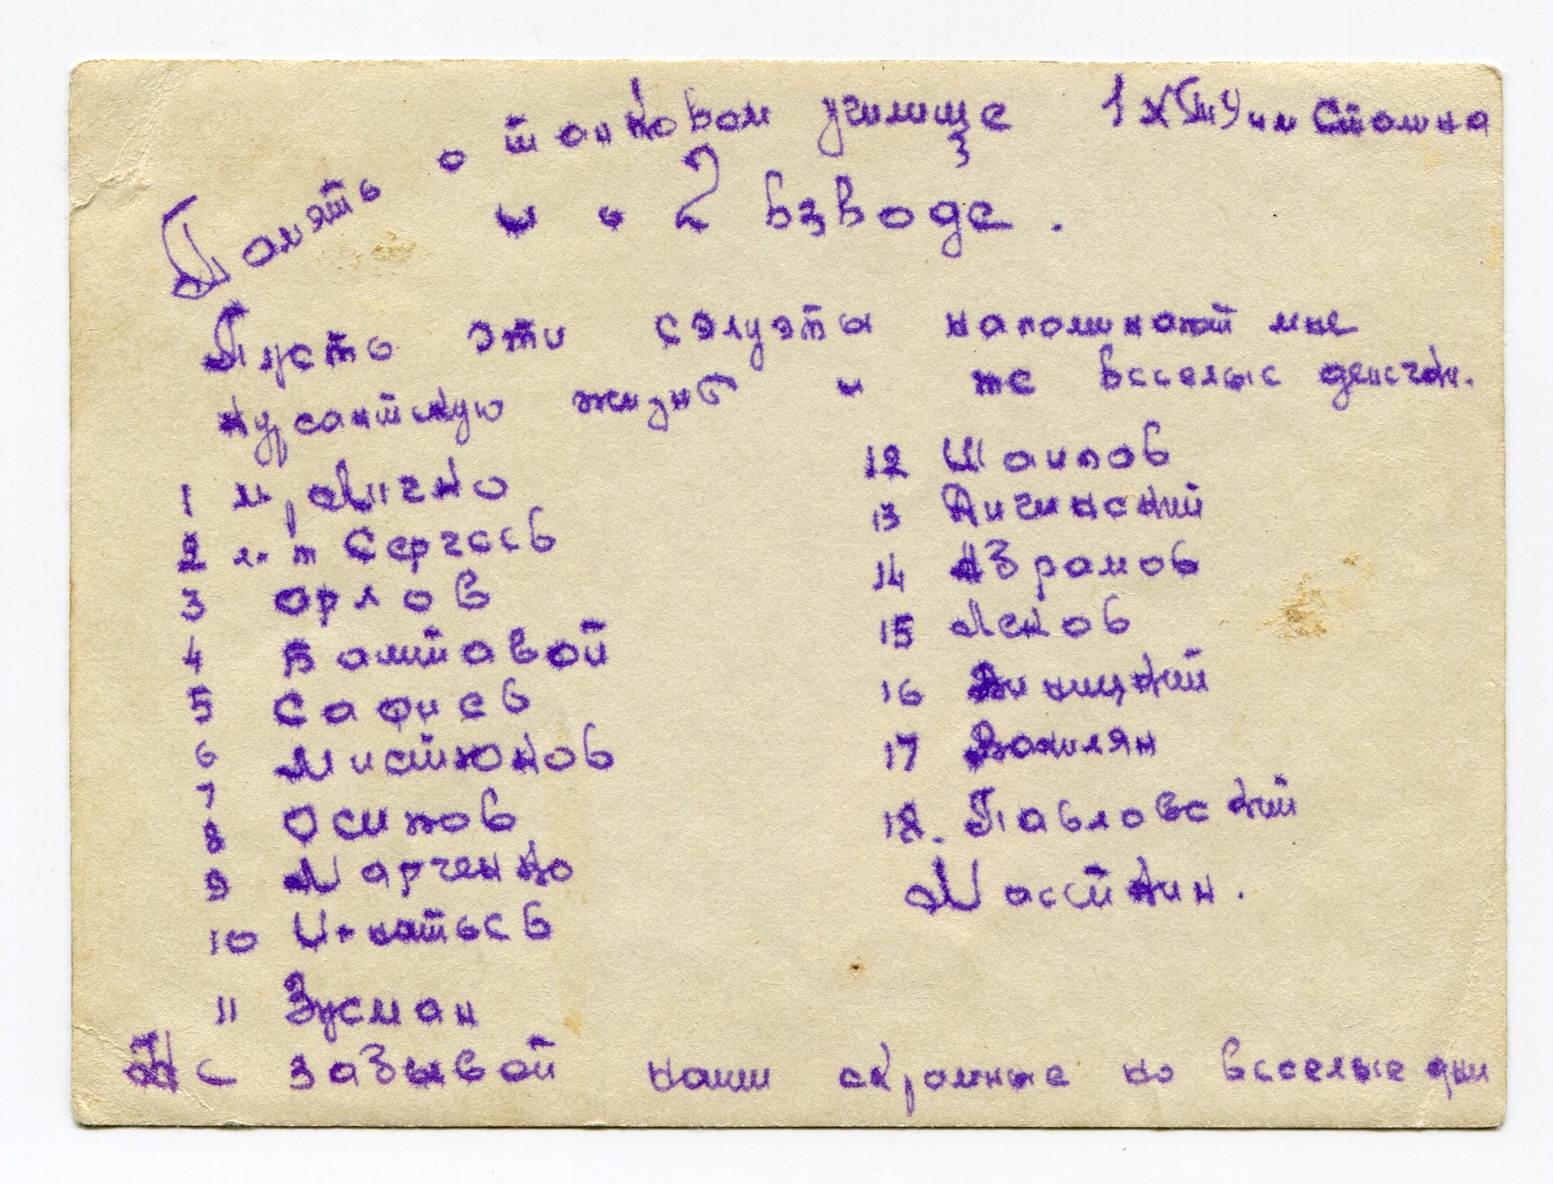 Память о танковом училище 1 ХТУ им Сталина
и о 2 взводе.
Пусть эти сэлуэты напоминают мне
курсантскую жизнь и те веселые денечки.
1
2 л-т Сергеев
3 Орлов
4 Балтавой
5 Сафиев
6 Мистюков
7
8 Осипов
9 Марченко
10 Игнатьев
11 Зусман
12 Шаипов
13 Личинский
14 Абрамов
15 Лехов
16 Виницкий
17 Вакилян
18. Павловский
Масткин.
Не забывай наши скромные но веселые дни